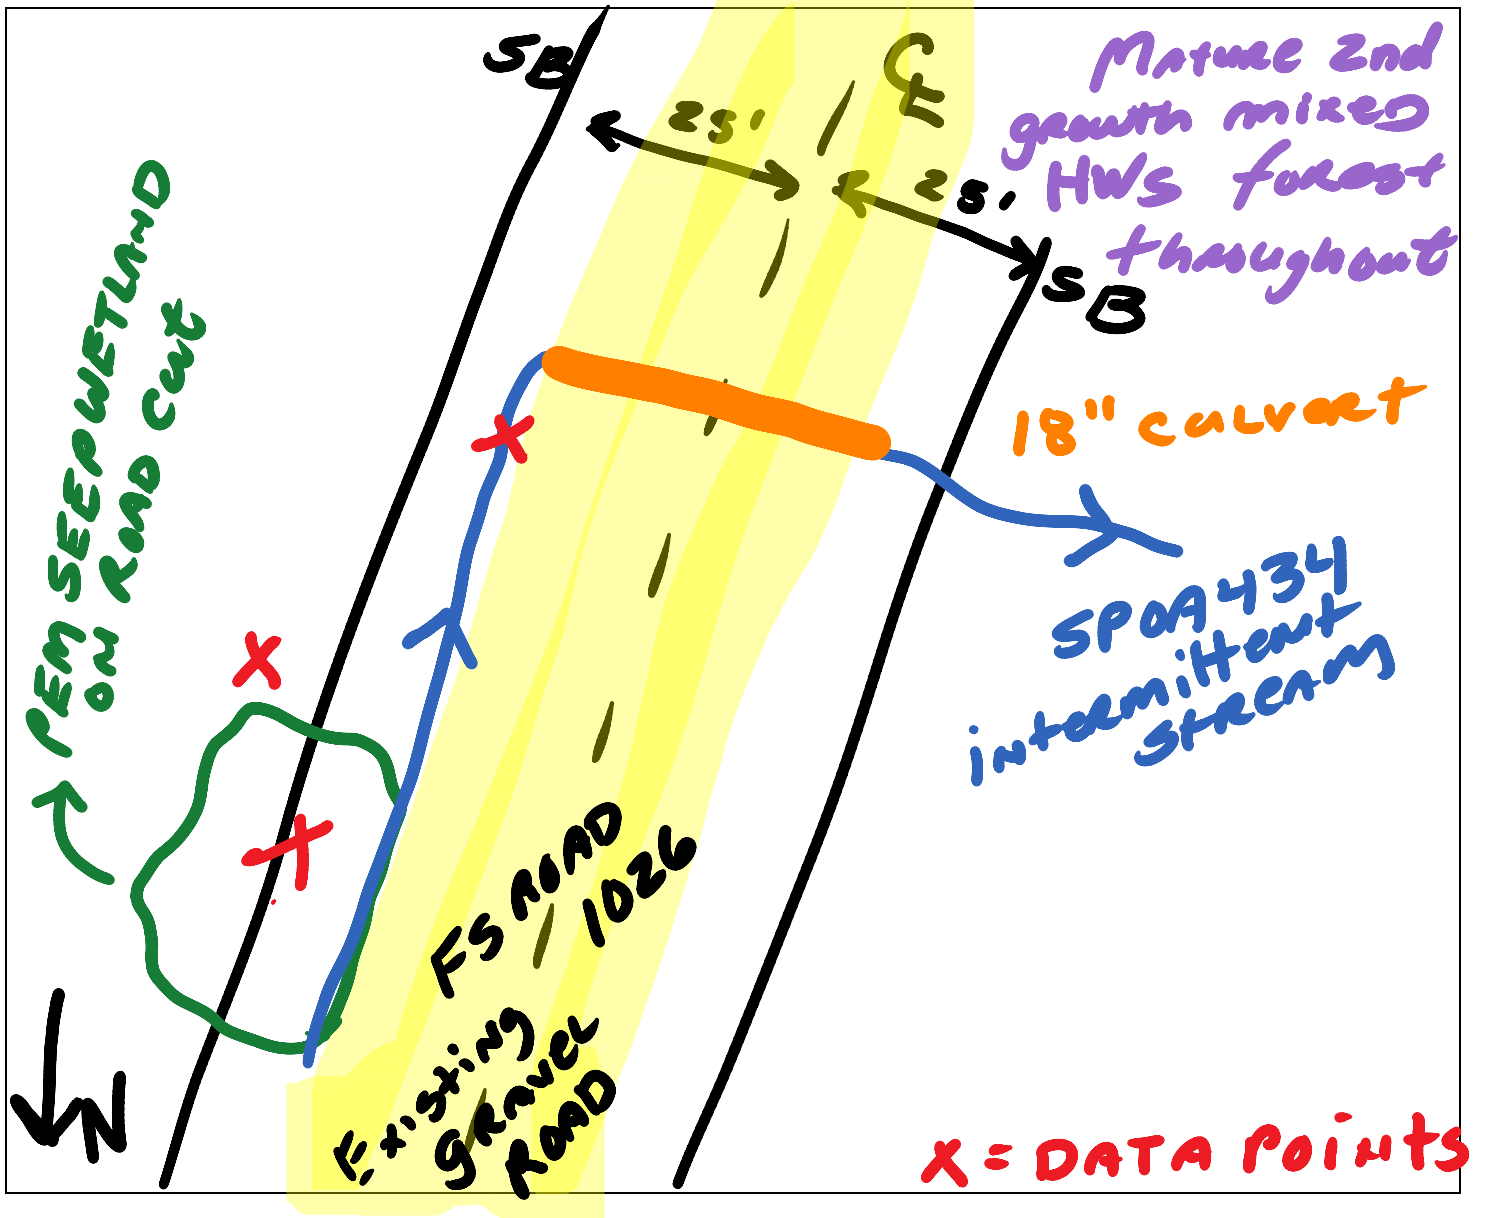 SB
25'
CL
25'
SB
Mature 2nd
growth mixed
HWS forest
throughout
PEM SEEP WETLAND
ON ROAD CUT
18" CULVERT
SPOA434
intermittent
stream
FS ROAD
1026
Existing
gravel
ROAD
N
X = DATA POINTS